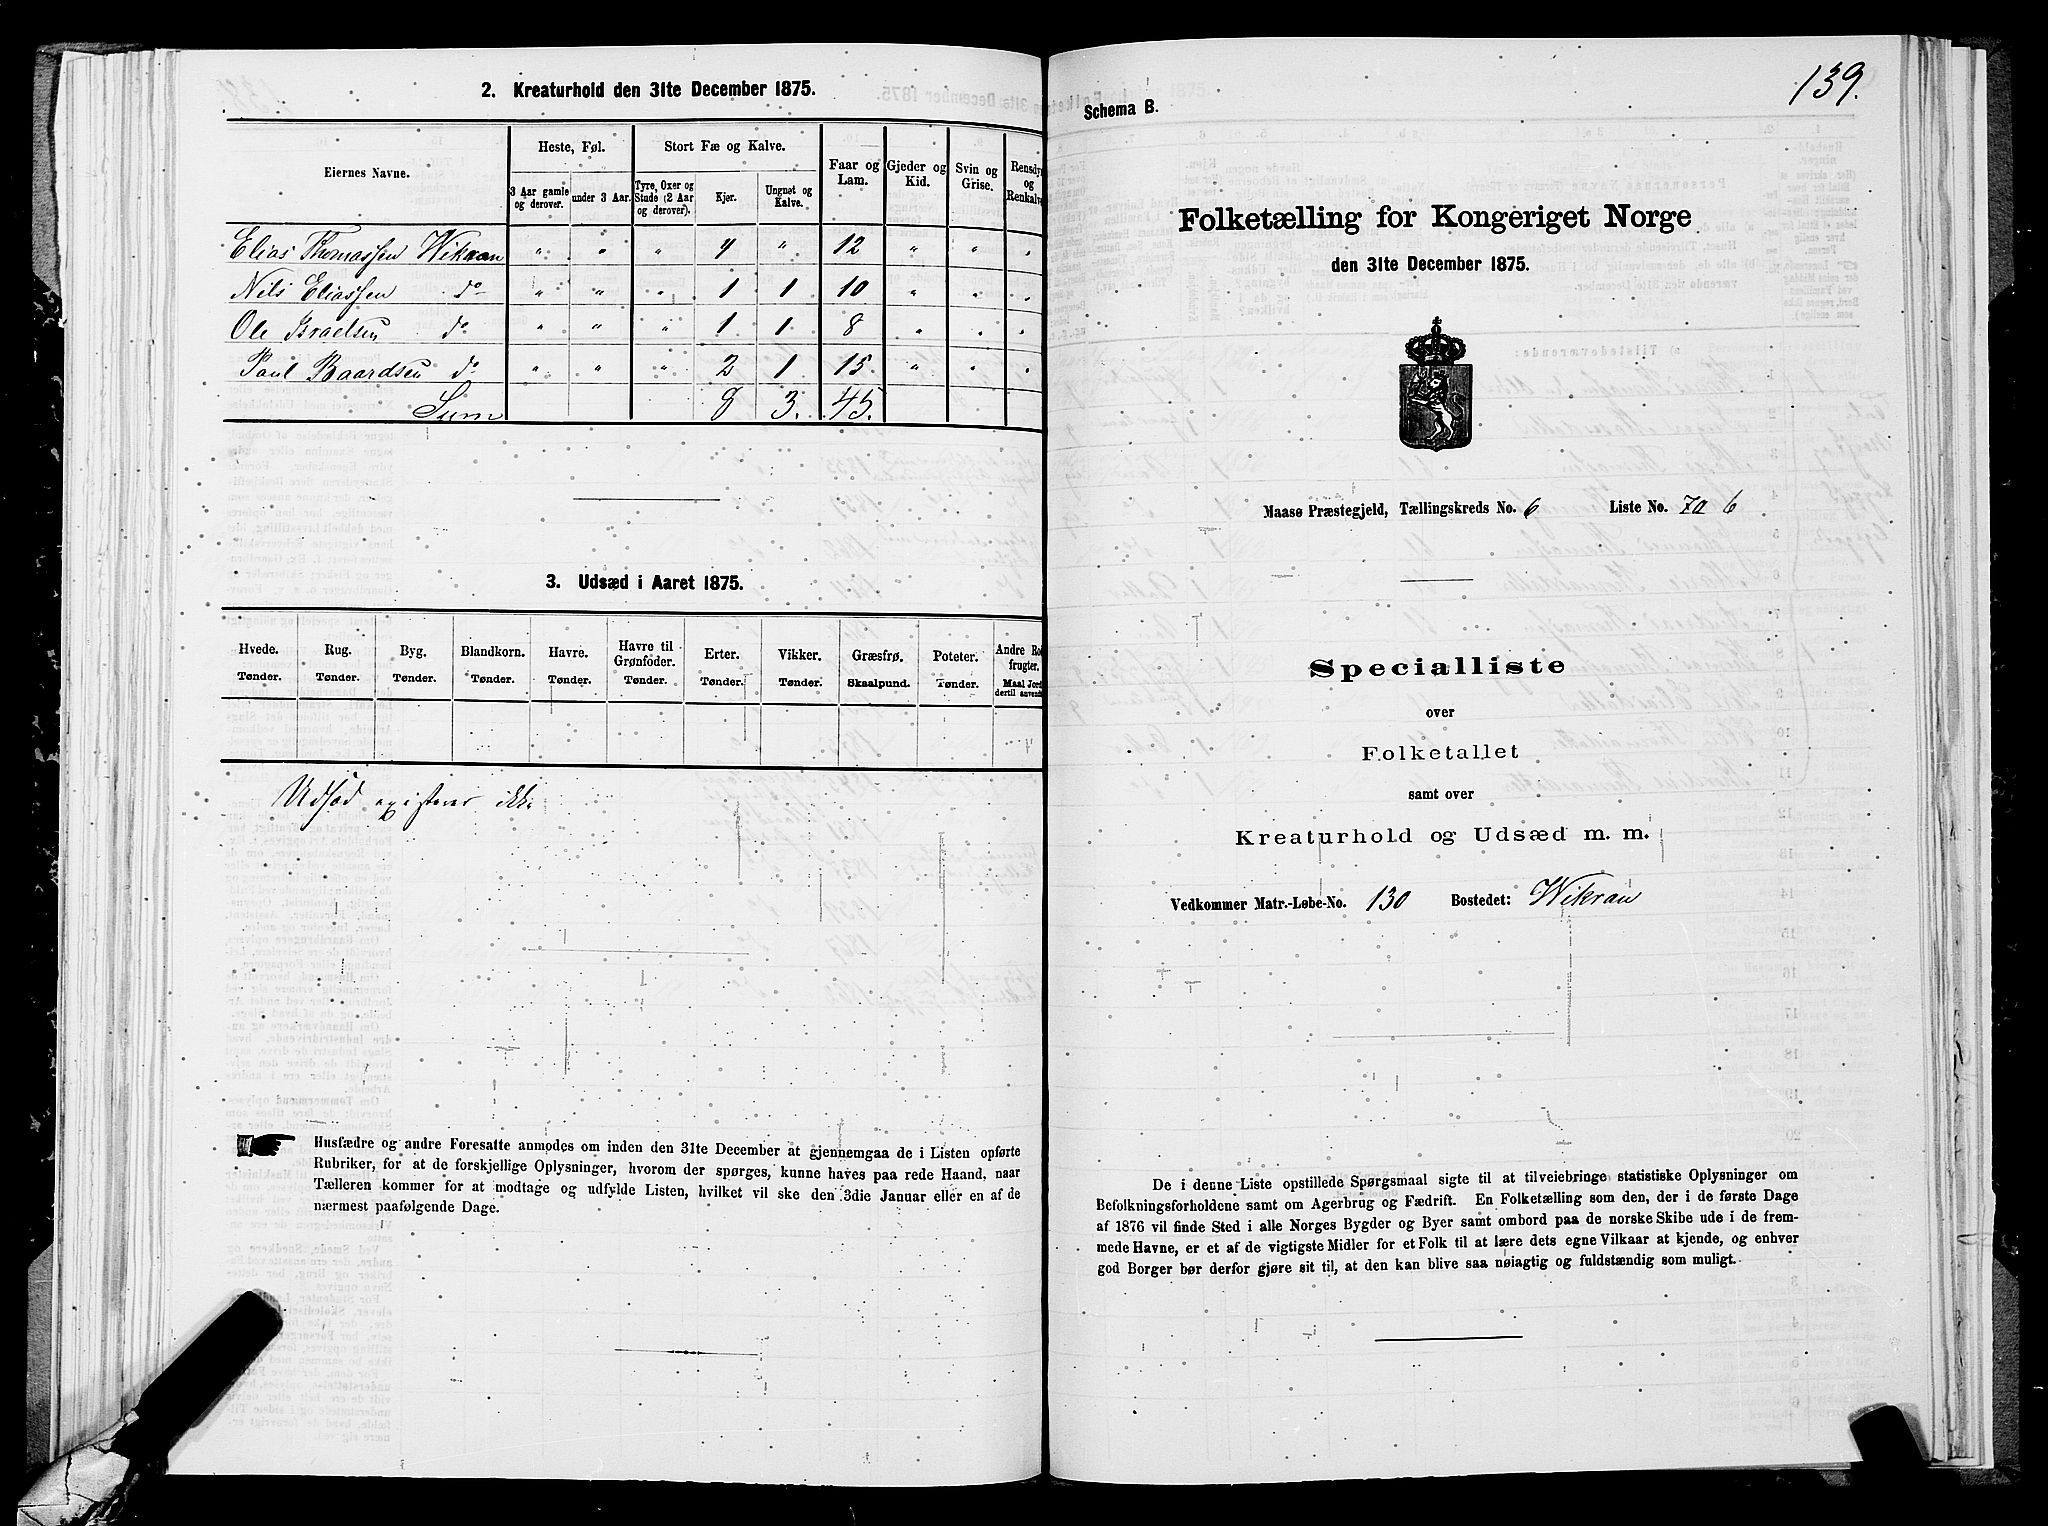 2. Kreaturhold den 31te December 1875.
Eiernes Navne.
Heste, Føl.
Stort Fæ og Kalve.
Faar og Lam.
Gjeder og Kid.
Svin og Grise.
Rensdyr og Renkalve
3 Aar gamle og derover.
under 3 Aar.
Tyre, Oxer og Stude (2 Aar og derover).
Kjer.
Ungnøt og Kalve.
Elias Thomassen Wikran " " " 4 " 12 " " "
Nils Eliassen do " " " 1 1 10 " " "
Ole Israelsen do " " " 1 1 8 " " "
Paul Baardsen do " " " 2 1 15 " " "
Sum 8 3. 45.
3. Udsæd i Aaret 1875.
Hvede. Rug. Byg. Blandkorn. Havre. Havre til Grønfoder. Erter. Vikker. Græsfrø. Poteter. Andre Ro frugter.
Tønder. Tønder. Tønder. Tønder. Tønder. Tønder. Tønder. Tønder. Skaalpund. Tønder. Maal Jord dertil anvendt
Udsæd existerer ikke
Husfædre og andre Foresatte anmodes om inden den 31te December at gjennemgaa de i Listen opførte
Rubriker, for at de forskjellige Oplysninger, hvorom der spørges, kunne haves paa rede Haand, naar
Tælleren kommer for at modtage og udfylde Listen, hvilket vil ske den 3die Januar eller en af de
nærmest paafølgende Dage.
139.
Schema B.
Folketælling for Kongeriget Norge
den 31te December 1875.
Maasø Præstegjeld, Tællingskreds No. 6 Liste No. 7a 6
Specialliste
over
Folketallet
samt over
Kreaturhold og Udsæd m. m.
Vedkommer Matr.-Løbe-No. 130 Bostedet: Wikran
De i denne Liste opstillede Spørgsmaal sigte til at tilveiebringe statistiske Oplysninger om
Befolkningsforholdene samt om Agerbrug og Fædrift. En Folketælling som den, der i de første Dage
af 1876 vil finde Sted i alle Norges Bygder og Byer samt ombord paa de norske Skibe ude i de frem-
mede Havne, er et af de vigtigste Midler for et Folk til at lære dets egne Vilkaar at kjende, og enhver
god Borger bør derfor gjøre sit til, at den kan blive saa nøiagtig og fuldstændig som muligt.